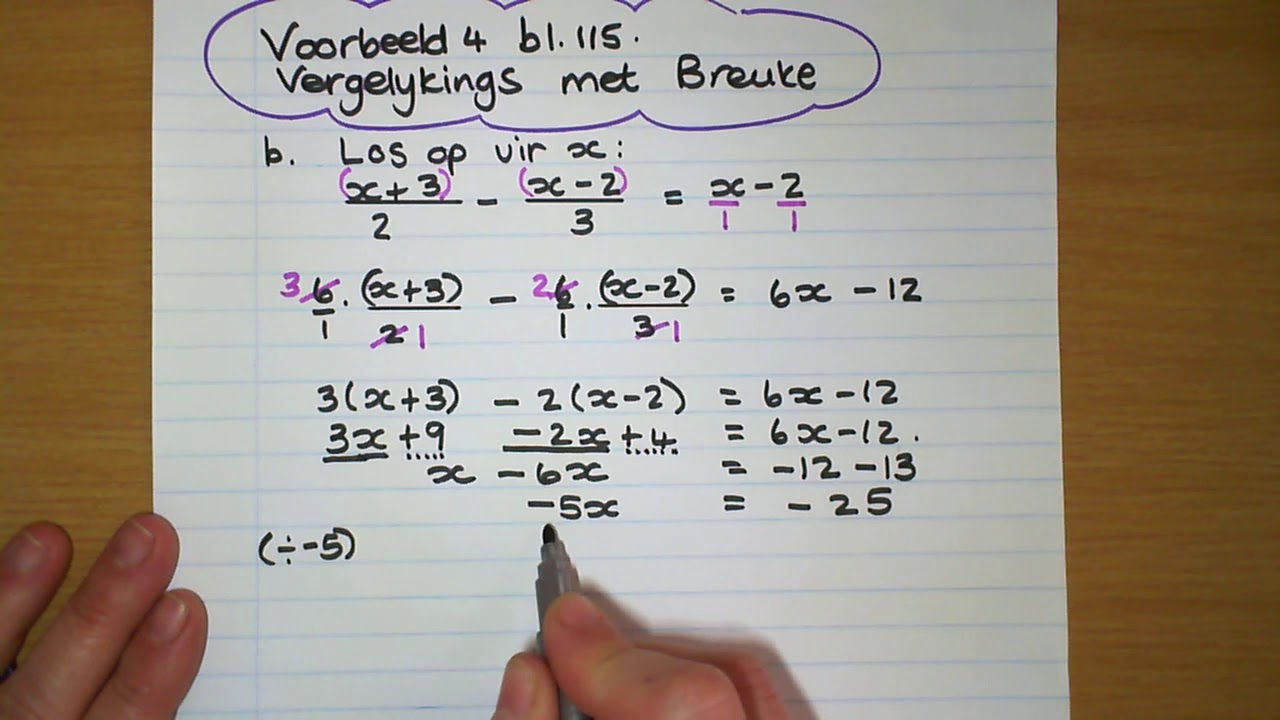 Voorbeeld 4 bl. 115.
Vergelykings met Breuke
b. Los op vir x:
(x + 3)/2 - (x - 2)/3 = x/1 - 2/1
3 6/1 . (x+3)/2 1 - 2 6/1 . (x-2)/3 1 = 6x - 12
3(x+3) - 2(x-2) = 6x - 12
3x + 9 - 2x + 4 = 6x - 12.
x - 6x = -12 - 13
-5x = -25
(÷-5)